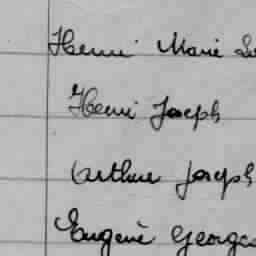 Henri Marie
Henri Joseph
Arthur Joseph
Eugène Georges